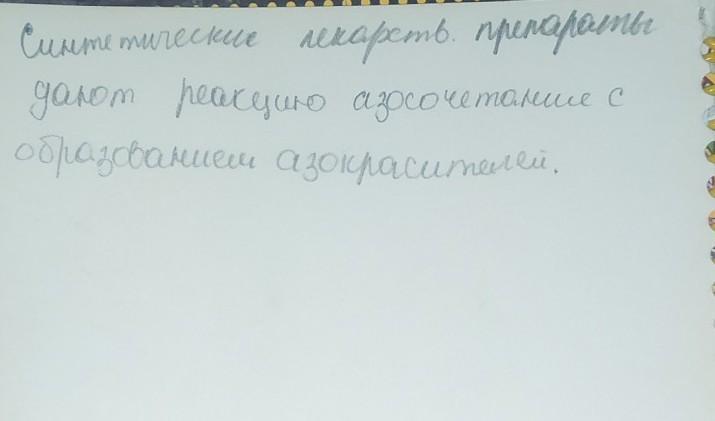 Синтетические лекарств. препараты
дают реакцию азосочетание с
образованием азокрасителей.